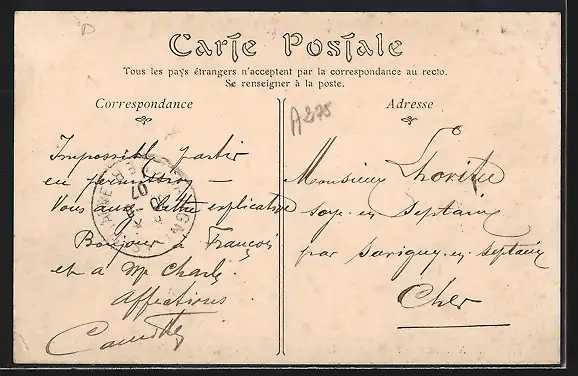 D
Carte Postale
Tous les pays étrangers n'acceptent pas la correspondance au recto.
Se renseigner à la poste.
Correspondance
Adresse
A 275
Impossible partir
en permission —
Vous aurez lettre explicative
Bonjour à François
et a Mr Charles.
Affections
Monsieur
soye en septaine
par Savigny en septaine
Cher
07